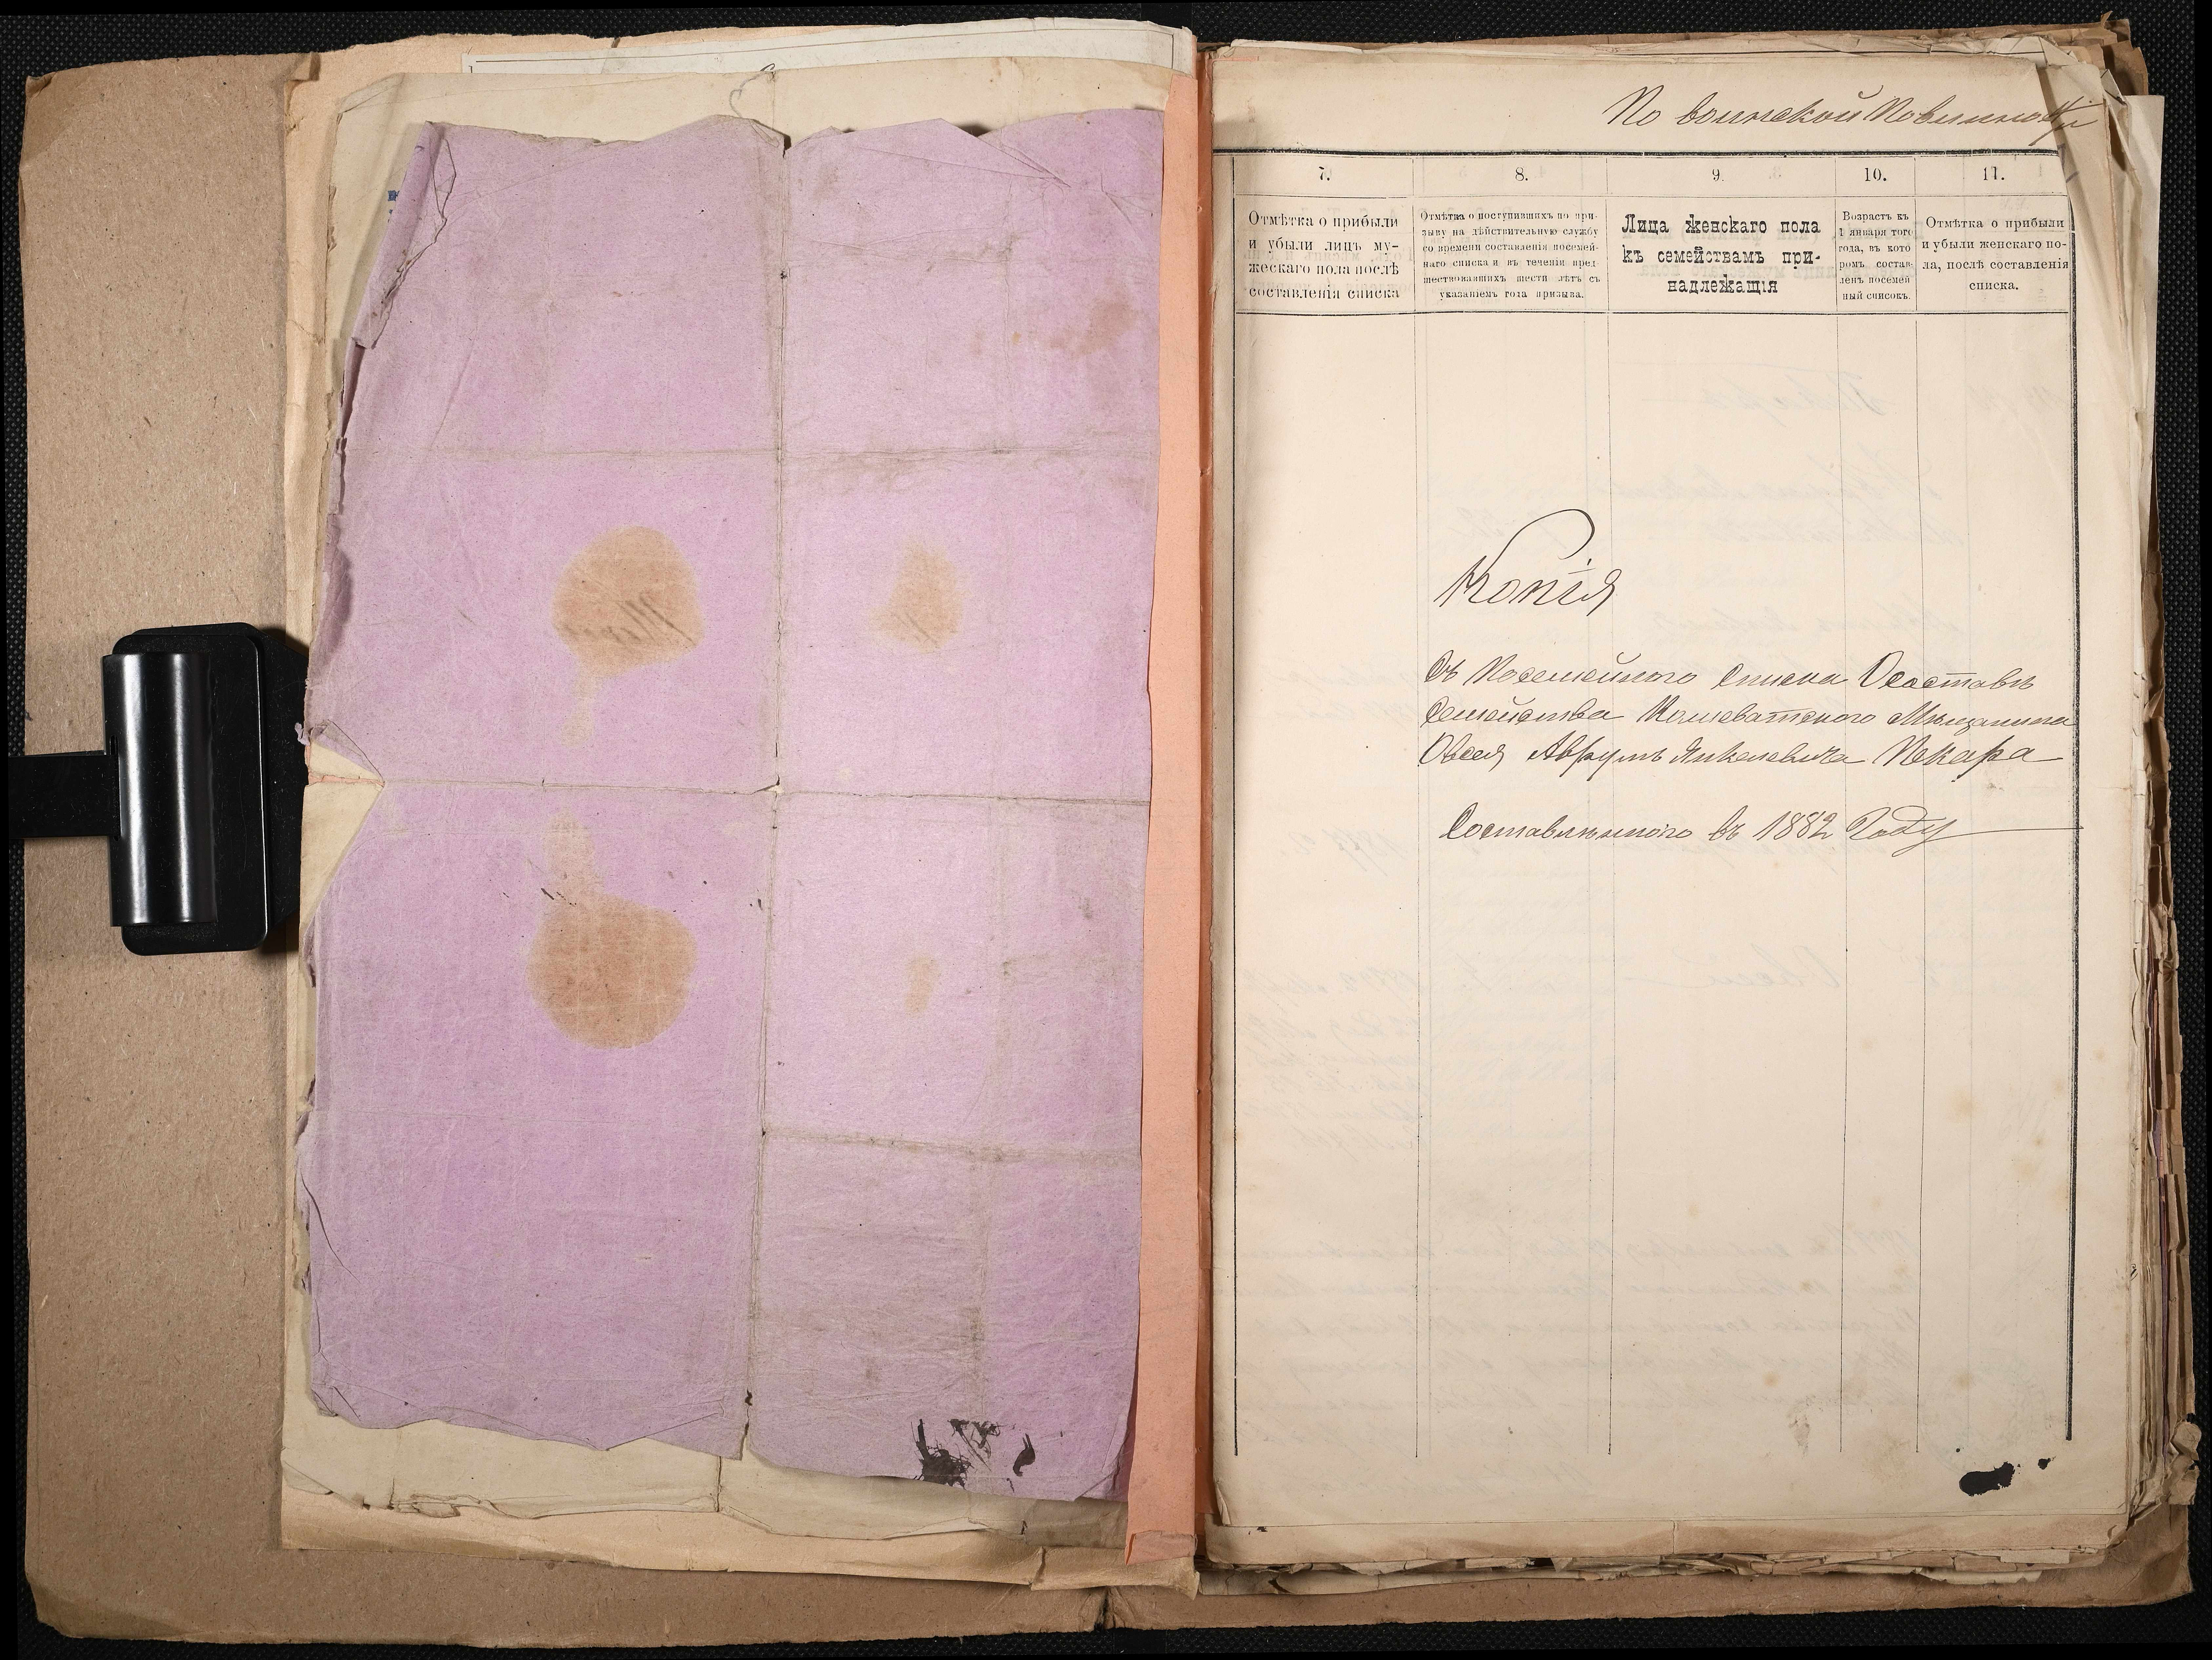 По воинской Повинности
7.
8.
9.
10.
11.
Отмѣтка о прибыли
и убыли лицъ му-
жескаго пола послѣ
составленія списка
Отмѣтка о поступившихъ по при-
зыву на дѣйствительную службу
со времени составленія посемей-
наго списка и въ теченіи пред-
шествовавшихъ шести лѣтъ съ
указаніемъ года призыва.
Лица женскаго пола
къ семействамъ при-
надлежащія
Возрастъ къ
1 января того
года, въ кото
ромъ состав-
ленъ посемей
ный списокъ.
Отмѣтка о прибыли
и убыли женскаго по-
ла, послѣ составленія
списка.
Копія
Съ Посемейного Списка О составѣ
Семейства Кошеватского Мѣщанина
Овсея Аврумъ Янкелевича Пекара
Составленного въ 1882 Году